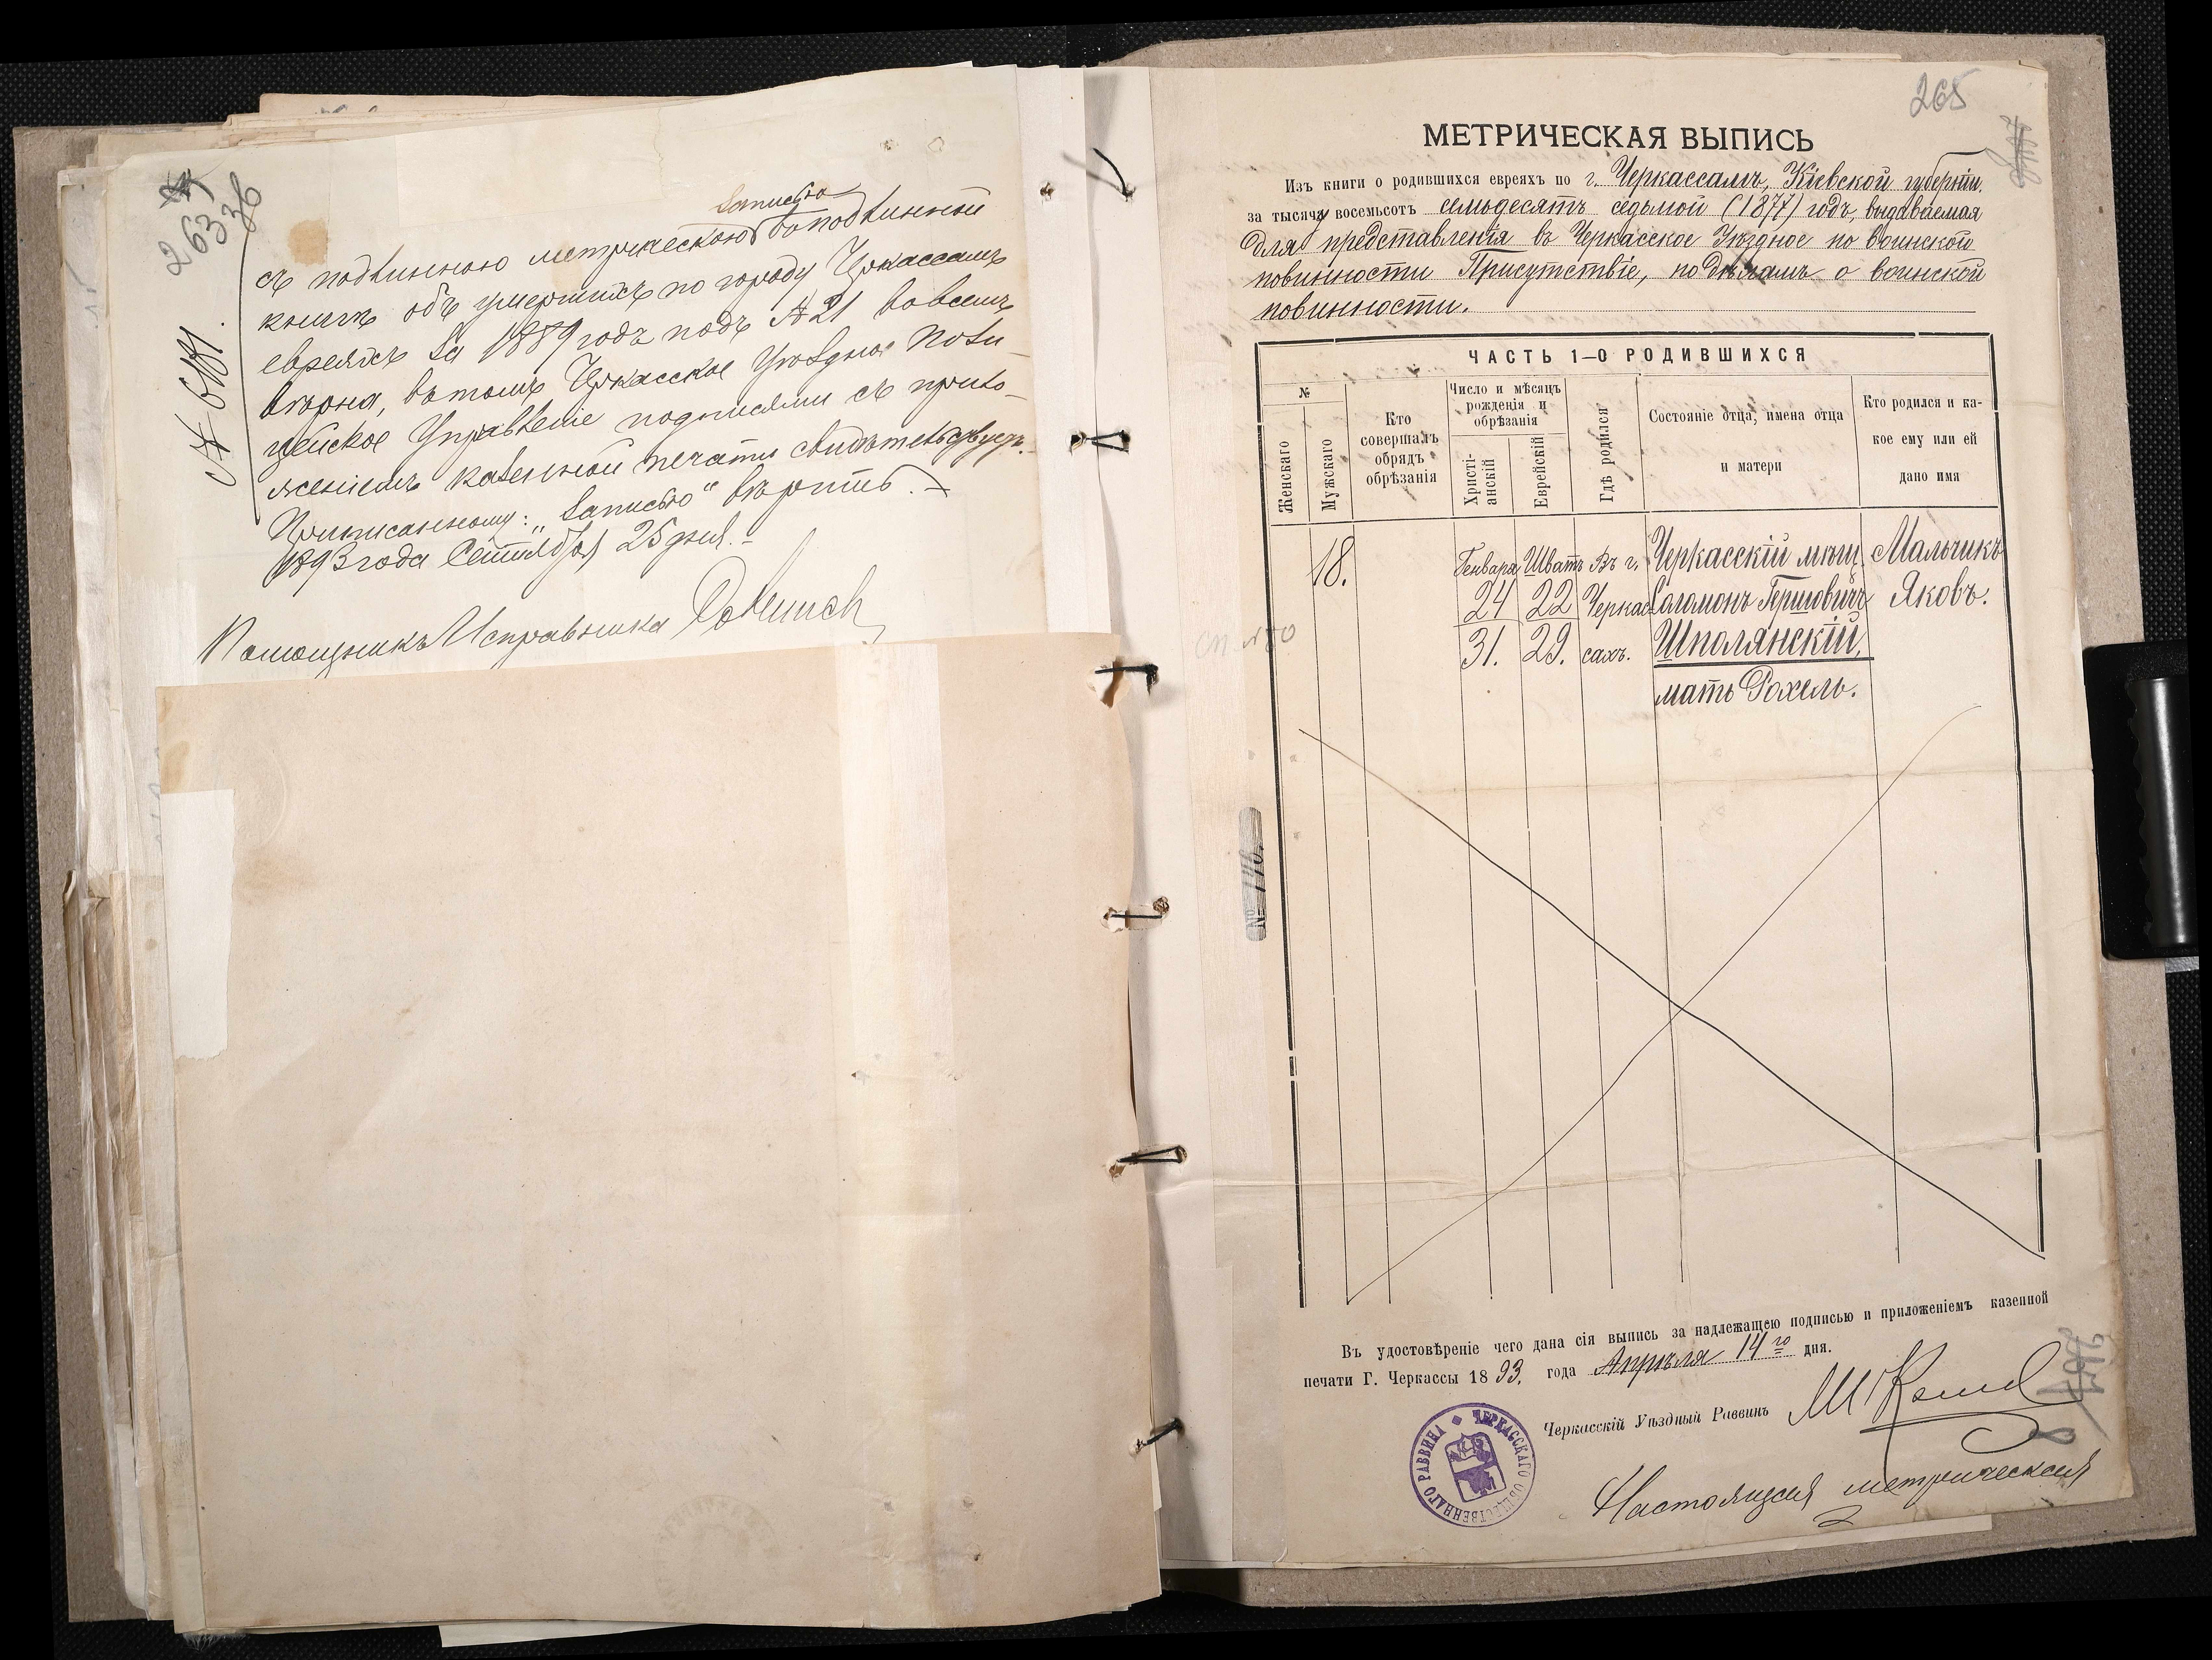 263
36
№ 6181.
записью
съ подлинною метрическою въ подлинной
книгѣ объ умершихъ по городу Черкассамъ
евреяхъ за 1889 годъ подъ № 21 во всемъ
вѣрна, въ томъ Черкасское Уѣздное Поли-
цейское Управленіе подписями съ прило-
женіемъ казенной печати свидѣтельствуетъ.
Приписанному: „записью“ вѣрить.
1893 года Сентября 25 дня.
Помощникъ Исправника
265
МЕТРИЧЕСКАЯ ВЫПИСЬ
Изъ книги о родившихся евреяхъ по г. Черкассамъ, Кіевской губерніи,
за тысяча восемьсотъ семьдесятъ седьмой (1877) годъ, выдаваемая
для представленія въ Черкасское Уѣздное по воинской
повинности Присутствіе, по дѣламъ о воинской
повинности.
ЧАСТЬ 1—О РОДИВШИХСЯ
№
Женскаго
Мужскаго
Кто совершалъ обрядъ обрѣзанія
Число и мѣсяцъ рожденія и обрѣзанія
Христі-анскій
Еврейскій
Гдѣ родился
Состояніе отца, имена отца и матери
Кто родился и ка-кое ему или ей дано имя
18. Генваря Шватъ Въ г. Черкасскій мѣщ. Мальчикъ
24 22 Черкас Соломонъ Гершовичъ Яковъ.
31. 29. сахъ. Шполянскій,
мать Рохель.
сп №50
№ 146.
Въ удостовѣреніе чего дана сія выпись за надлежащею подписью и приложеніемъ казенной
печати Г. Черкассы 1893. года Апрѣля 14го дня.
Черкасскій Уѣздный Раввинъ
ЧЕРКАССКАГО ОБЩЕСТВЕННАГО РАВВИНА
Настоящая метрическая